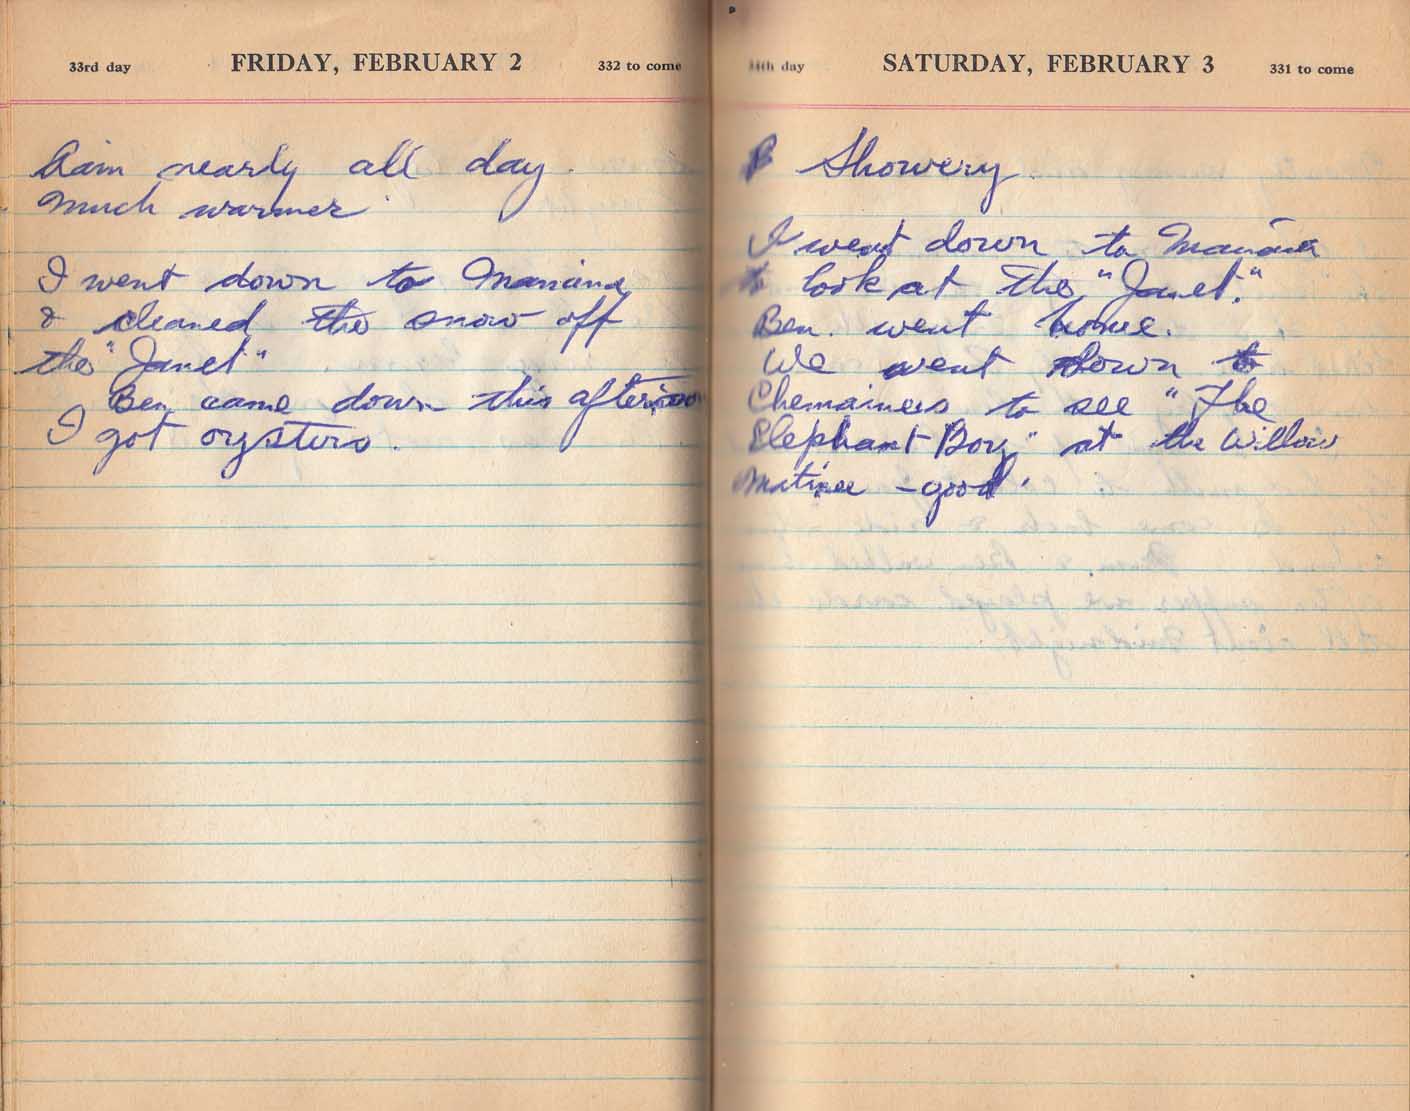 33rd day FRIDAY, FEBRUARY 2 332 to come
Rain nearly all day.
Much warmer.
I went down to Manana
& cleaned the snow off
the "Janet"
Ben came down this afternoon
I got oysters.
34th day SATURDAY, FEBRUARY 3 331 to come
Showery
I went down to Manana
to look at the "Janet."
Ben. went home.
We went down to
Chemainus to see "The
Elephant Boy" at the Willow
Matinee - good.